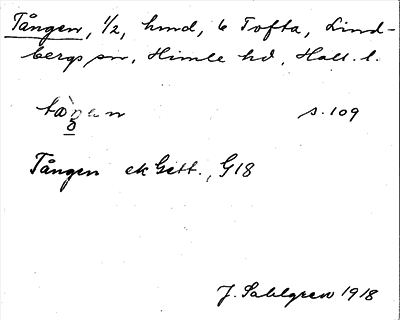 Tången, 1/2, hmd, 6 Tofta, Lind-
bergs sn, Himle hd, Hall. l.
s. 109
Tången ek Gstt., G18
J. Sahlgren 1918